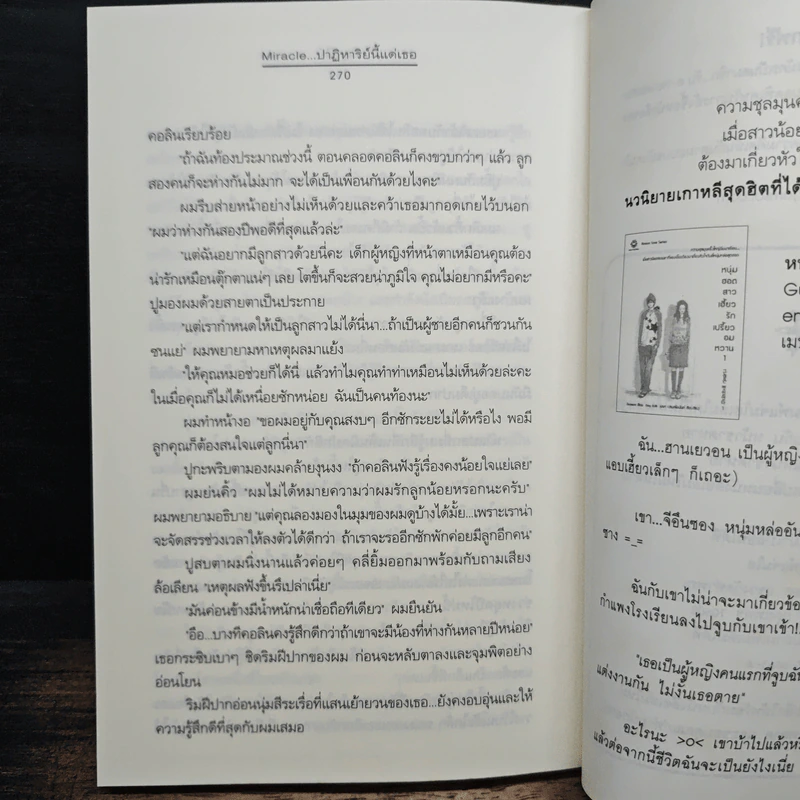 Miracle...ปาฏิหาริย์นี้แด่เธอ
270
คอลินเรียบร้อย
"ถ้าฉันท้องประมาณช่วงนี้ ตอนคลอดคอลินก็คงขวบกว่าๆ แล้ว ลูก
สองคนก็จะห่างกันไม่มาก จะได้เป็นเพื่อนกันด้วยไงคะ"
ผมรีบส่ายหน้าอย่างไม่เห็นด้วยและคว้าเธอมากอดเกยไว้บนอก
"ผมว่าห่างกันสองปีพอดีที่สุดแล้วล่ะ"
"แต่ฉันอยากมีลูกสาวด้วยนี่คะ เด็กผู้หญิงที่หน้าตาเหมือนคุณต้อง
น่ารักเหมือนตุ๊กตาแน่ๆ เลย โตขึ้นก็จะสวยน่าภูมิใจ คุณไม่อยากมีหรือคะ"
ปูมองผมด้วยสายตาเป็นประกาย
"แต่เรากำหนดให้เป็นลูกสาวไม่ได้นี่นา...ถ้าเป็นผู้ชายอีกคนก็ชวนกัน
ซนแย่" ผมพยายามหาเหตุผลมาแย้ง
"ให้คุณหมอช่วยก็ได้นี่ แล้วทำไมคุณทำท่าเหมือนไม่เห็นด้วยล่ะคะ
ในเมื่อคุณก็ไม่ได้เหนื่อยซักหน่อย ฉันเป็นคนท้องนะ"
ผมทำหน้างอ "ขอผมอยู่กับคุณสงบๆ อีกซักระยะไม่ได้หรือไง พอมี
ลูกคุณก็ต้องสนใจแต่ลูกนี่นา"
ปูกะพริบตามองผมคล้ายงุนงง "ถ้าคอลินฟังรู้เรื่องคงน้อยใจแย่เลย"
ผมย่นคิ้ว "ผมไม่ได้หมายความว่าผมรักลูกน้อยหรอกนะครับ"
ผมพยายามอธิบาย "แต่คุณลองมองในมุมของผมดูบ้างได้มั้ย...เพราะเราน่า
จะจัดสรรช่วงเวลาให้ลงตัวได้ดีกว่า ถ้าเราจะรออีกซักพักค่อยมีลูกอีกคน"
ปูสบตาผมนิ่งนานแล้วค่อยๆ คลี่ยิ้มออกมาพร้อมกับถามเสียง
ล้อเลียน "เหตุผลฟังขึ้นรึเปล่าเนี่ย"
"มันค่อนข้างมีน้ำหนักน่าเชื่อถือทีเดียว" ผมยืนยัน
"อือ...บางทีคอลินคงรู้สึกดีกว่าถ้าเขาจะมีน้องที่ห่างกันหลายปีหน่อย"
เธอกระซิบเบาๆ ชิดริมฝีปากของผม ก่อนจะหลับตาลงและจุมพิตอย่าง
อ่อนโยน
ริมฝีปากอ่อนนุ่มสีระเรื่อที่แสนเย้ายวนของเธอ...ยังคงอบอุ่นและให้
ความรู้สึกดีที่สุดกับผมเสมอ
ความชุลมุน
เมื่อสาวน้อย
ต้องมาเกี่ยวหัว
นวนิยายเกาหลีสุดฮิตที่ได้
หนุ่ม
ฮอต
สาว
เฮี้ยว
รัก
เปรี้ยว
อม
หวาน
1
ฉัน...ฮานเยวอน เป็นผู้หญิง
แอบเฮี้ยวเล็กๆ ก็เถอะ)
เขา...จีอึนซอง หนุ่มหล่ออัน
ซาง =_=
ฉันกับเขาไม่น่าจะมาเกี่ยวข้อ
กำแพงโรงเรียนลงไปจูบกับเขาเข้า!
"เธอเป็นผู้หญิงคนแรกที่จูบฉัน
แต่งงานกัน ไม่งั้นเธอตาย"
อะไรนะ >o< เขาบ้าไปแล้ว
แล้วต่อจากนี้ชีวิตฉันจะเป็นยังไงเนี่ย